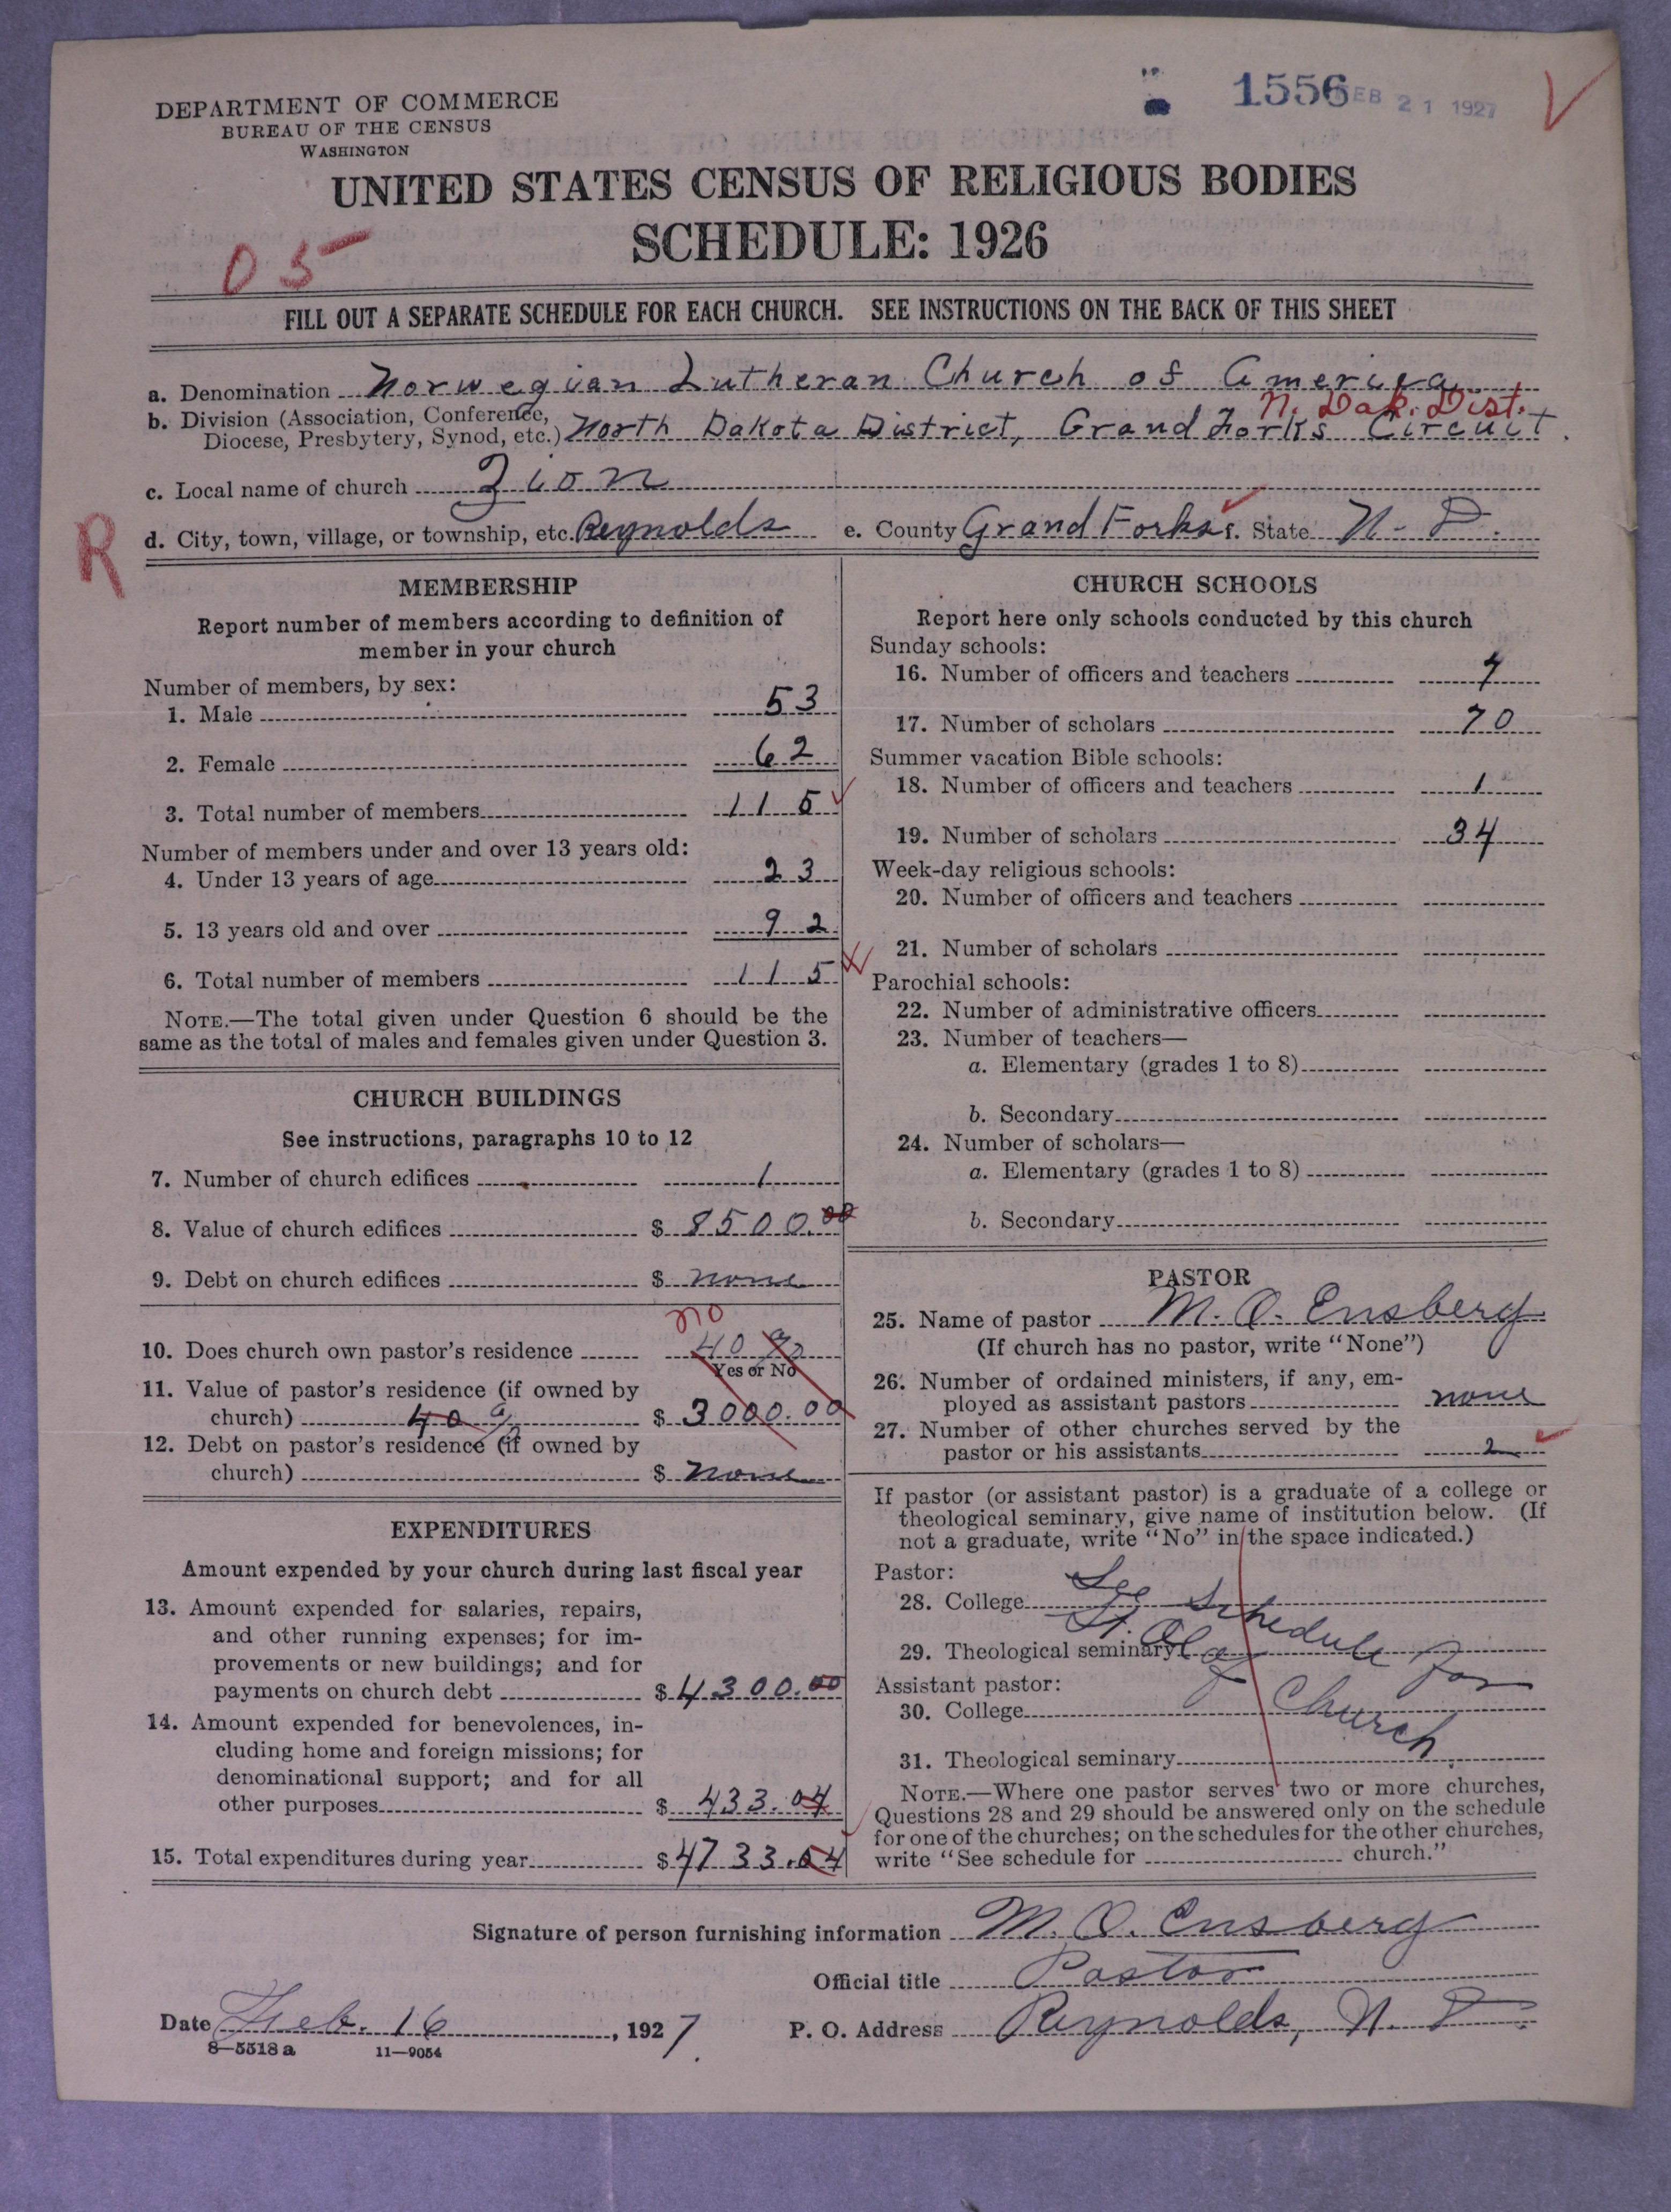 DEPARTMENT OF COMMERCE
BUREAU OF THE CENSUS
WASHINGTON
1556
FEB 21 1927
UNITED STATES CENSUS OF RELIGIOUS BODIES
SCHEDULE: 1926
05
FILL OUT A SEPARATE SCHEDULE FOR EACH CHURCH. SEE INSTRUCTIONS ON THE BACK OF THIS SHEET
a. Denomination Norwegian Lutheran Church of America
N. Dak. Dist.
b. Division (Association, Conference,
Diocese, Presbytery, Synod, etc.) North Dakota District, Grand Forks Circuit.
c. Local name of church Zion
R
d. City, town, village, or township, etc. Reynolds e. County Grand Forks f. State N. D.
MEMBERSHIP
Report number of members according to definition of
member in your church
Number of members, by sex:
1. Male 53
2. Female 62
3. Total number of members 115
Number of members under and over 13 years old:
4. Under 13 years of age 23
5. 13 years old and over 92
6. Total number of members 115
NOTE.—The total given under Question 6 should be the
same as the total of males and females given under Question 3.
CHURCH BUILDINGS
See instructions, paragraphs 10 to 12
7. Number of church edifices 1
8. Value of church edifices $ 8500.00
9. Debt on church edifices $ none
no
10. Does church own pastor's residence 40 %
Yes or No
11. Value of pastor's residence (if owned by
church) 40 % $ 3000.00
12. Debt on pastor's residence (if owned by
church) $ none
EXPENDITURES
Amount expended by your church during last fiscal year
13. Amount expended for salaries, repairs,
and other running expenses; for im-
provements or new buildings; and for
payments on church debt $ 4300.00
14. Amount expended for benevolences, in-
cluding home and foreign missions; for
denominational support; and for all
other purposes $ 433.04
15. Total expenditures during year $ 4733.04
CHURCH SCHOOLS
Report here only schools conducted by this church
Sunday schools:
16. Number of officers and teachers 7
17. Number of scholars 70
Summer vacation Bible schools:
18. Number of officers and teachers 1
19. Number of scholars 34
Week-day religious schools:
20. Number of officers and teachers
21. Number of scholars
Parochial schools:
22. Number of administrative officers
23. Number of teachers—
a. Elementary (grades 1 to 8)
b. Secondary
24. Number of scholars—
a. Elementary (grades 1 to 8)
b. Secondary
PASTOR
25. Name of pastor M. O. Ensberg
(If church has no pastor, write "None")
26. Number of ordained ministers, if any, em-
ployed as assistant pastors none
27. Number of other churches served by the
pastor or his assistants 2
If pastor (or assistant pastor) is a graduate of a college or
theological seminary, give name of institution below. (If
not a graduate, write "No" in the space indicated.)
Pastor:
28. College See Schedule for
29. Theological seminary St. Olaf Church.
Assistant pastor:
30. College
31. Theological seminary
NOTE.—Where one pastor serves two or more churches,
Questions 28 and 29 should be answered only on the schedule
for one of the churches; on the schedules for the other churches,
write "See schedule for church."
Signature of person furnishing information M. O. Ensberg
Official title Pastor
Date Feb. 16, 1927.
P. O. Address Reynolds, N. D.
8—5518 a 11—9054